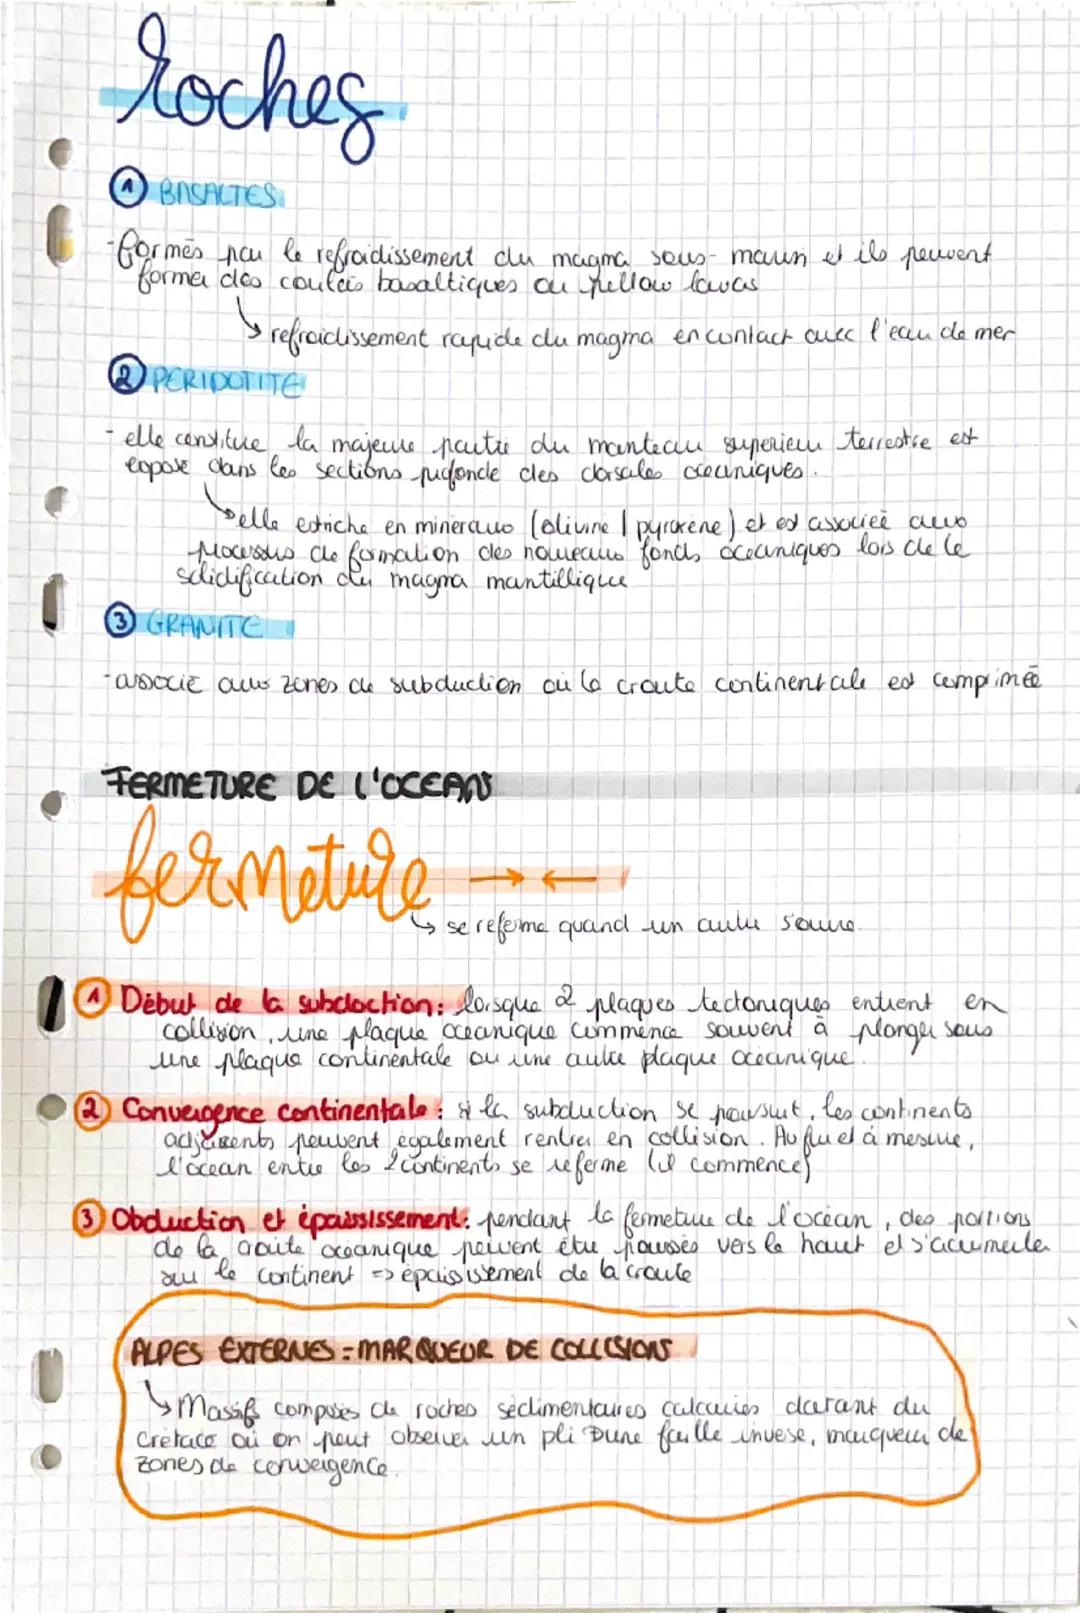 roches
① BASALTES
- formés par le refroidissement du magma sous-marin et ils peuvent
former des coulées basaltiques ou pillow lavas
↳ refroidissement rapide du magma en contact avec l'eau de mer
② PERIDOTITE
- elle constitue la majeure partie du manteau superieur terrestre est
expose dans les sections profonde des dorsales océaniques.
↳ elle est riche en mineraux (olivine | pyroxène) et est associée aux
processus de formation des nouveaux fonds océaniques lors de le
solidification du magma mantillique
③ GRANITE
- associé aux zones de subduction où la croute continentale est comprimée
FERMETURE DE L'OCEAN
fermeture → ←
↳ se referme quand un autre s'ouvre.
① Début de la subdoction : lorsque 2 plaques tectoniques entrent en
collision, une plaque océanique commence souvent à plonger sous
une plaque continentale ou une autre plaque océanique.
② Convergence continentale : si la subduction se poursuit, les continents
adjacents peuvent également rentrer en collision. Au fur et à mesure,
l'océan entre les 2 continents se referme (il commence)
③ Obduction et épaississement : pendant la fermeture de l'océan, des portions
de la croute océanique peuvent être poussés vers le haut et s'accumuler
sur le continent => épaississement de la croute
ALPES EXTERNES = MARQUEUR DE COLLISIONS
↳ Massifs composés de roches sédimentaires calcaires datant du
Crétacé où on peut observer un pli Dune faille inverse, marqueur de
zones de convergence.